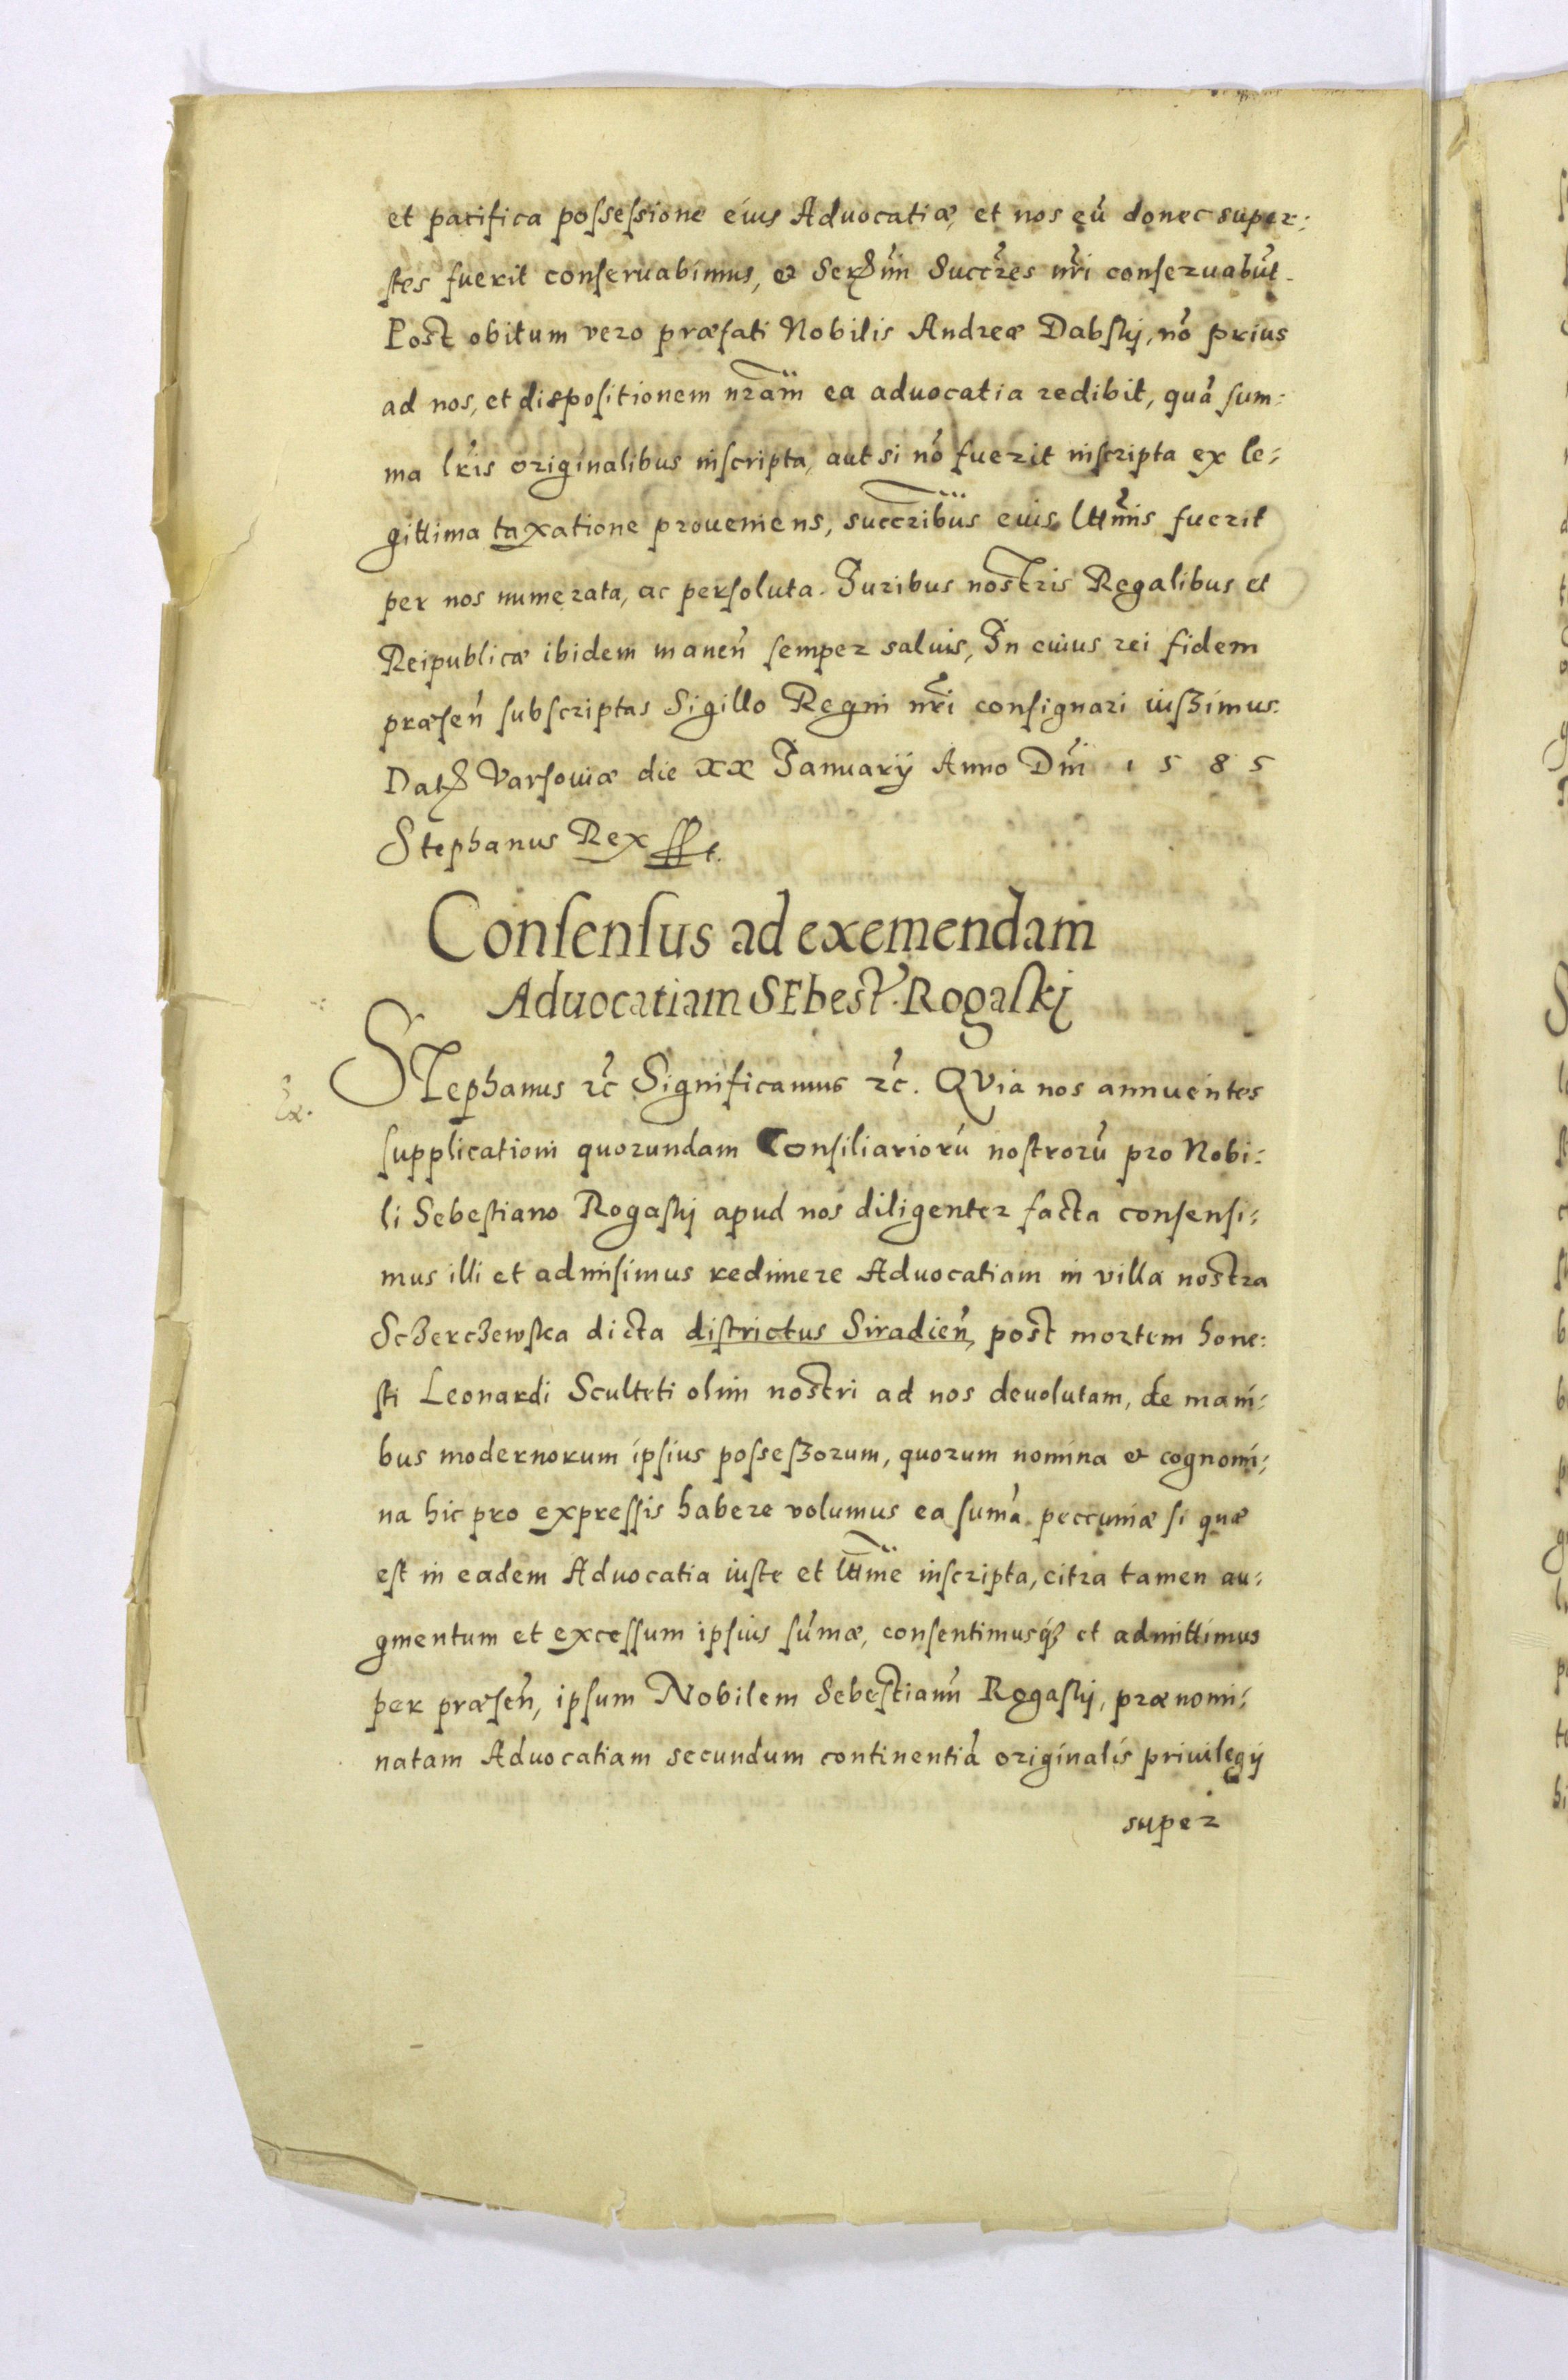 et pacifica possessione eius Aduocatiæ, et nos eũ donec super:
stes fuerit conseruabimus, et Sermi Succres nri conseruabũt.
Post obitum vero præfati Nobilis Andreæ Dabskj, nõ prius
ad nos, et dispositionem nram ea aduocatia redibit, quã sum:
ma lris originalibus inscripta, aut si nõ fuerit inscripta ex le:
gittima taxatione proueniens, succribus eius lttimis fuerit
per nos numerata, ac persoluta. Iuribus nostris Regalibus et
Reipublicæ ibidem maneñ semper saluis, In cuius rei fidem
præseñ subscriptas Sigillo Regni nri consignari iussimus.
Dat Varsouiæ die xx Ianuarij Anno Dni 1585
Stephanus Rex sst.
Consensus ad exemendam
Aduocatiam SEbest. Rogaskj
STephanus etc Significamus etc. QVia nos annuentes
supplicationi quorundam Consiliariorũ nostrorũ pro Nobi:
li Sebestiano Rogaskj apud nos diligenter facta consensi:
mus illi et admisimus redimere Aduocatiam in villa nostra
Sczerczewska dicta districtus Siradieñ, post mortem hone:
sti Leonardi Sculteti olim nostri ad nos deuolutam, de mani:
bus modernorum ipsius possessorum, quorum nomina et cognomi:
na hic pro expressis habere volumus ea suma peccuniæ si quæ
est in eadem Aduocatia iuste et lttime inscripta, citra tamen au:
gmentum et excessum ipsius sumæ, consentimusq3 et admittimus
per præseñ, ipsum Nobilem Sebestianũ Rogaskj, prænomi:
natam Aduocatiam secundum continentiã originalis priuilegij
super